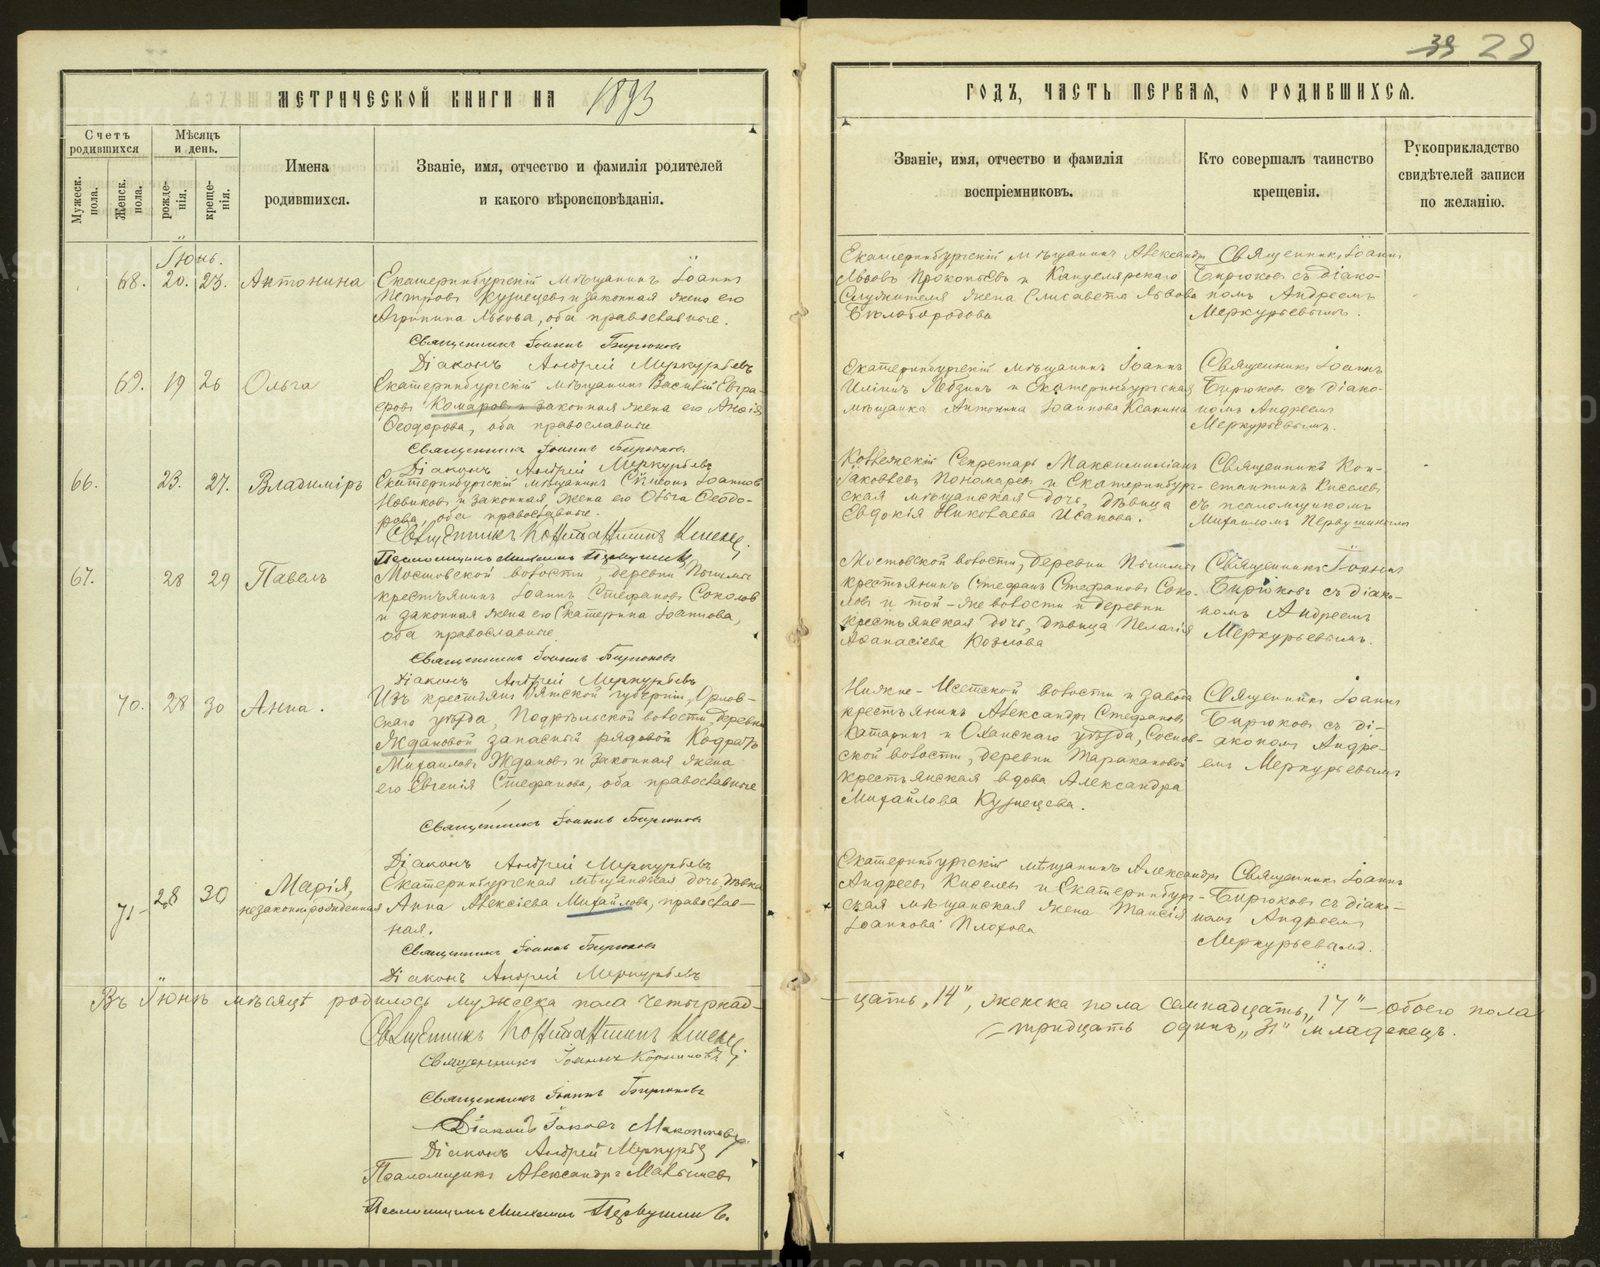 39 28
МЕТРИЧЕСКОЙ КНИГИ НА 1893
ГОДЪ, ЧАСТЬ ПЕРВАЯ, О РОДИВШИХСЯ.
Счетъ родившихся
Мужеск. пола.
Женск. пола.
Мѣсяцъ и день.
рожденія.
крещенія.
Имена родившихся.
Званіе, имя, отчество и фамилія родителей
и какого вѣроисповѣданія.
Званіе, имя, отчество и фамилія
воспріемниковъ.
Кто совершалъ таинство
крещенія.
Рукоприкладство
свидѣтелей записи
по желанію.
Іюнь.
68. 20. 23. Антонина
Екатеринбургскій мѣщанинъ Іоаннъ
Петровъ Кузнецовъ и законная жена его
Агрипина Львова, оба православные.
Священникъ Іоаннъ Бирюковъ
Діаконъ Андрей Меркурьевъ
Екатеринбургскій мѣщанинъ Александръ
Львовъ Прокопьевъ и Канцелярскаго
Служителя жена Елисавета Львова
Бѣлобородова
Священникъ Іоаннъ
Бирюковъ съ діако-
номъ Андреемъ
Меркурьевымъ.
69. 19 26 Ольга
Екатеринбургскій мѣщанинъ Василій Евгра-
фовъ Комаровъ и законная жена его Анисія
Ѳеодорова, оба православные
Священникъ Іоаннъ Бирюковъ
Діаконъ Андрей Меркурьевъ
Екатеринбургскій мѣщанинъ Іоаннъ
Иліинъ Лебзинъ и Екатеринбургская
мѣщанка Антонина Іоаннова
Священникъ Іоаннъ
Бирюковъ съ діако-
номъ Андреемъ
Меркурьевымъ.
66. 23. 27. Владиміръ
Екатеринбургскій мѣщанинъ Симеонъ Іоанновъ
Новиковъ и законная жена его Ольга Ѳеодо-
рова, оба православные.
Священникъ Константинъ Киселевъ
Псаломщикъ Михаилъ Первушинъ
Коллежскій Секретарь Максимиліанъ
Іаковлевъ Пономаревъ и Екатеринбург-
ская мѣщанская дочь, дѣвица
Евдокія Николаева Исакова.
Священникъ Кон-
стантинъ Киселевъ
съ псаломщикомъ
Михаиломъ Первушинымъ
67. 28 29 Павелъ
Мостовской волости, деревни Пышмы
крестьянинъ Іоаннъ Стефановъ Соколовъ
и законная жена его Екатерина Іоаннова,
оба православные.
Священникъ Іоаннъ Бирюковъ
Діаконъ Андрей Меркурьевъ
Мостовской волости, деревни Пышмы
крестьянинъ Стефанъ Стефановъ Соко-
ловъ и той-же волости и деревни
крестьянская дочь, дѣвица Пелагія
Аѳанасіева Козлова
Священникъ Іоаннъ
Бирюковъ съ діако-
номъ Андреемъ
Меркурьевымъ.
70. 28 30 Анна.
Изъ крестьянъ Вятской губерніи, Орлов-
скаго уѣзда, Подрѣльской волости, деревни
Ждановой запасный рядовой Кодратъ
Михаиловъ Ждановъ и законная жена
его Евгенія Стефанова, оба православные
Священникъ Іоаннъ Бирюковъ
Діаконъ Андрей Меркурьевъ
Нижне-Исетской волости и завода
крестьянинъ Александръ Стефановъ
Катаринъ и Оханскаго уѣзда, Соснов-
ской волости, деревни Таракановой
крестьянская вдова Александра
Михайлова Кузнецева.
Священникъ Іоаннъ
Бирюковъ съ ді-
акономъ Андре-
емъ Меркурьевымъ
71 28 30 Марія,
незаконнорожденная
Екатеринбургская мѣщанская дочь, дѣвка
Анна Алексіева Михайлова, православ-
ная.
Священникъ Іоаннъ Бирюковъ
Діаконъ Андрей Меркурьевъ
Екатеринбургскій мѣщанинъ Александръ
Андреевъ Киселевъ и Екатеринбург-
ская мѣщанская жена Таисія
Іоаннова Плохова
Священникъ Іоаннъ
Бирюковъ съ діако-
номъ Андреемъ
Меркурьевымъ.
Въ Іюнѣ мѣсяцѣ родилось мужеска пола четырнад-
цать „14", женска пола семнадцать „17" — обоего пола
тридцать одинъ „31" младенецъ.
Священникъ Константинъ Киселевъ
Священникъ Іоаннъ Корниловъ
Священникъ Іоаннъ Бирюковъ
Діаконъ Іаковъ
Діаконъ Андрей Меркурьевъ
Псаломщикъ Александръ
Псаломщикъ Михаилъ Первушинъ.
METRIKI.GASO-URAL.RU